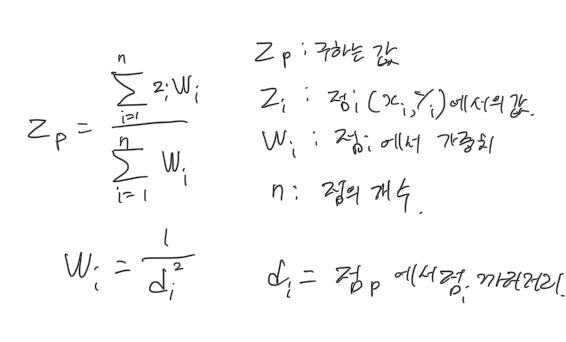 Z_p = \frac{\sum_{i=1}^{n} z_i W_i}{\sum_{i=1}^{n} W_i}
Z_p : 구하는 값
Z_i : 점_i (x_i, y_i)에서의 값.
W_i : 점_i 에서 가중치
n : 점의 개수.
W_i = \frac{1}{d_i^2}
d_i = 점_p 에서 점_i 까지 거리.